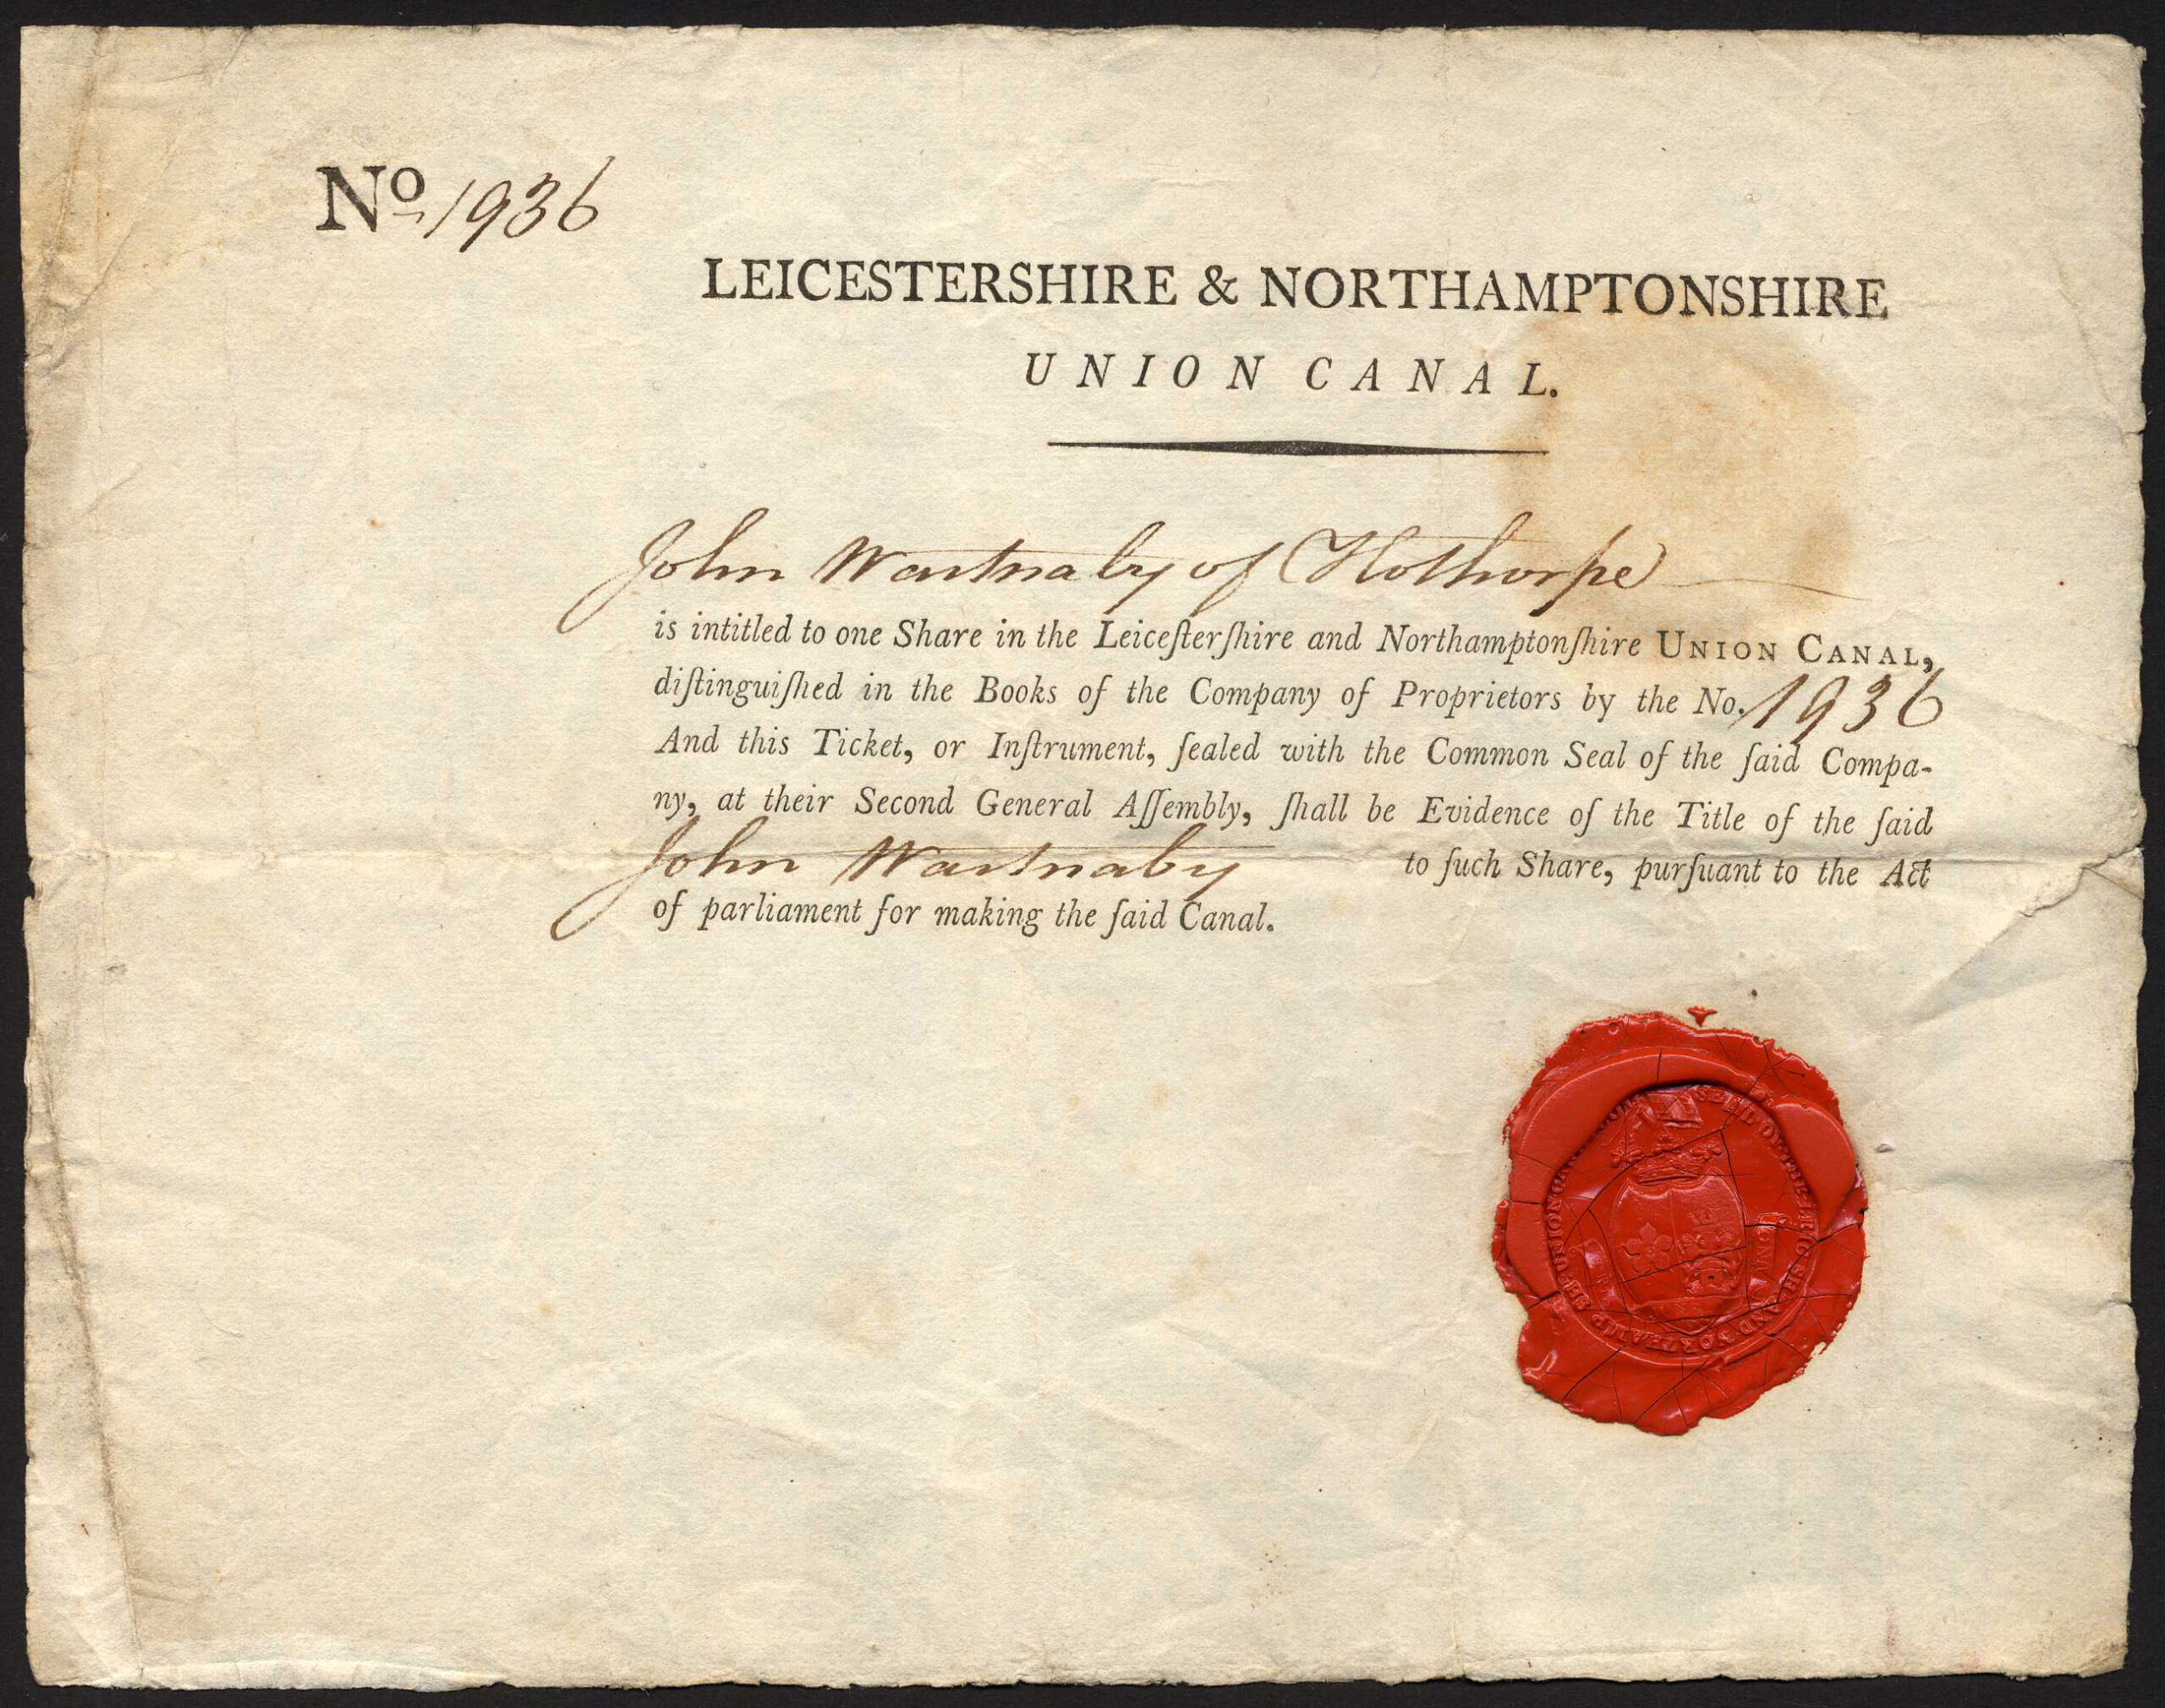 Nº 1936
LEICESTERSHIRE & NORTHAMPTONSHIRE
UNION CANAL.
John Wartnaby of Hothorpe
is intitled to one Share in the Leiceſterſhire and Northamptonſhire UNION CANAL,
diſtinguiſhed in the Books of the Company of Proprietors by the No. 1936
And this Ticket, or Inſtrument, ſealed with the Common Seal of the ſaid Compa-
ny, at their Second General Aſſembly, ſhall be Evidence of the Title of the ſaid
John Wartnaby to ſuch Share, purſuant to the Act
of parliament for making the ſaid Canal.